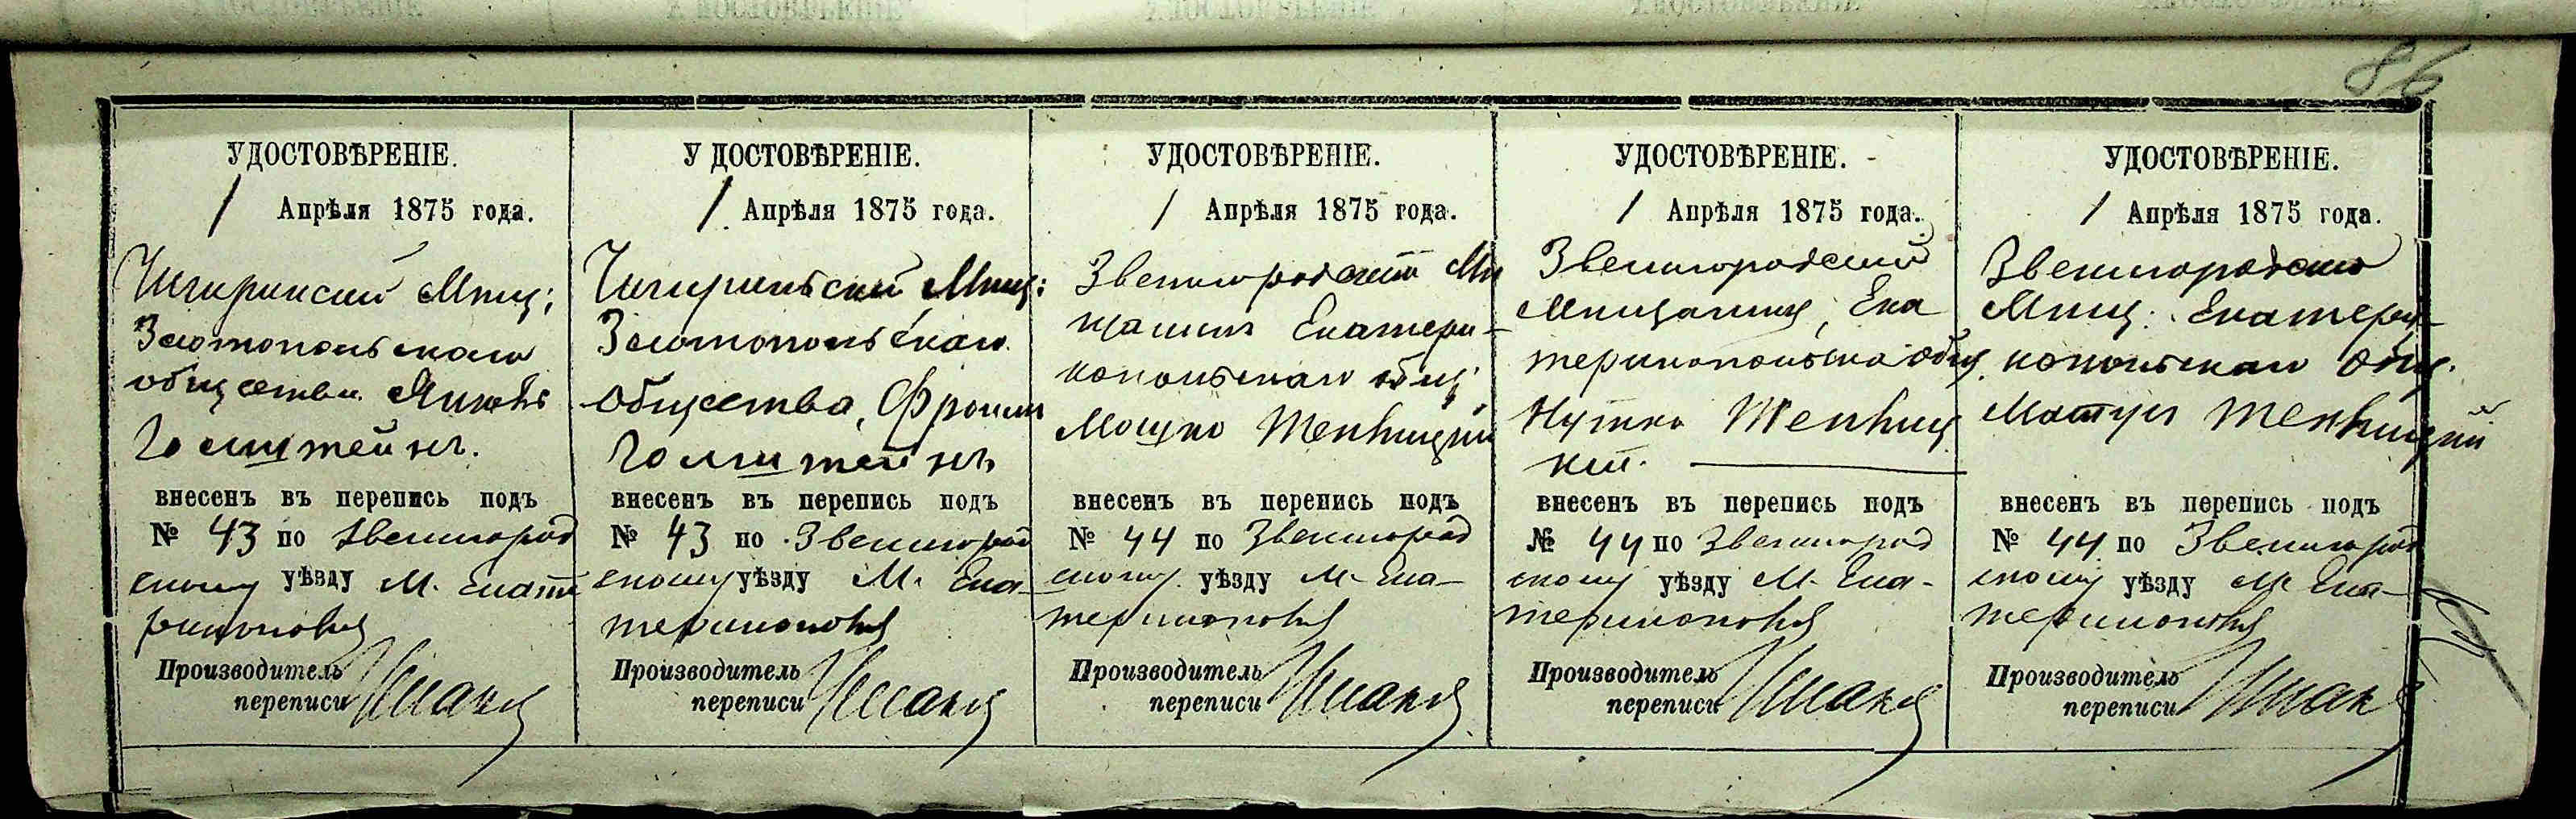 86
УДОСТОВѢРЕНІЕ.
1 Апрѣля 1875 года.
Чигиринскій Мѣщ:
Златопольскаго
общества Янкель
Голштейнъ.
внесенъ въ перепись подъ
№ 43 по Звенигород
скому уѣзду М. Екате
ринополя
Производитель
переписи
УДОСТОВѢРЕНІЕ.
1 Апрѣля 1875 года.
Чигиринскій Мѣщ:
Златопольскаго
Общества, Фроим
Голштейнъ
внесенъ въ перепись подъ
№ 43 по Звенигород
скому уѣзду М. Ека-
теринополя
Производитель
переписи
УДОСТОВѢРЕНІЕ.
1 Апрѣля 1875 года.
Звенигородскій Мѣ
щанинъ Екатери-
нопольскаго общ;
Мошко Теплицкій
внесенъ въ перепись подъ
№ 44 по Звенигород
скому уѣзду М. Ека-
теринополя
Производитель
переписи
УДОСТОВѢРЕНІЕ.
1 Апрѣля 1875 года.
Звенигородскій
Мѣщанинъ, Ека
теринопольска общ.
Нутко Теплиц
кій.
внесенъ въ перепись подъ
№ 44 по Звенигород
скому уѣзду М. Ека-
теринополя
Производитель
переписи
УДОСТОВѢРЕНІЕ.
1 Апрѣля 1875 года.
Звенигородскій
Мѣщ: Екатери-
нопольскаго общ.
Теплицкій
внесенъ въ перепись подъ
№ 44 по Звенигород
скому уѣзду М. Ека-
теринополя
Производитель
переписи